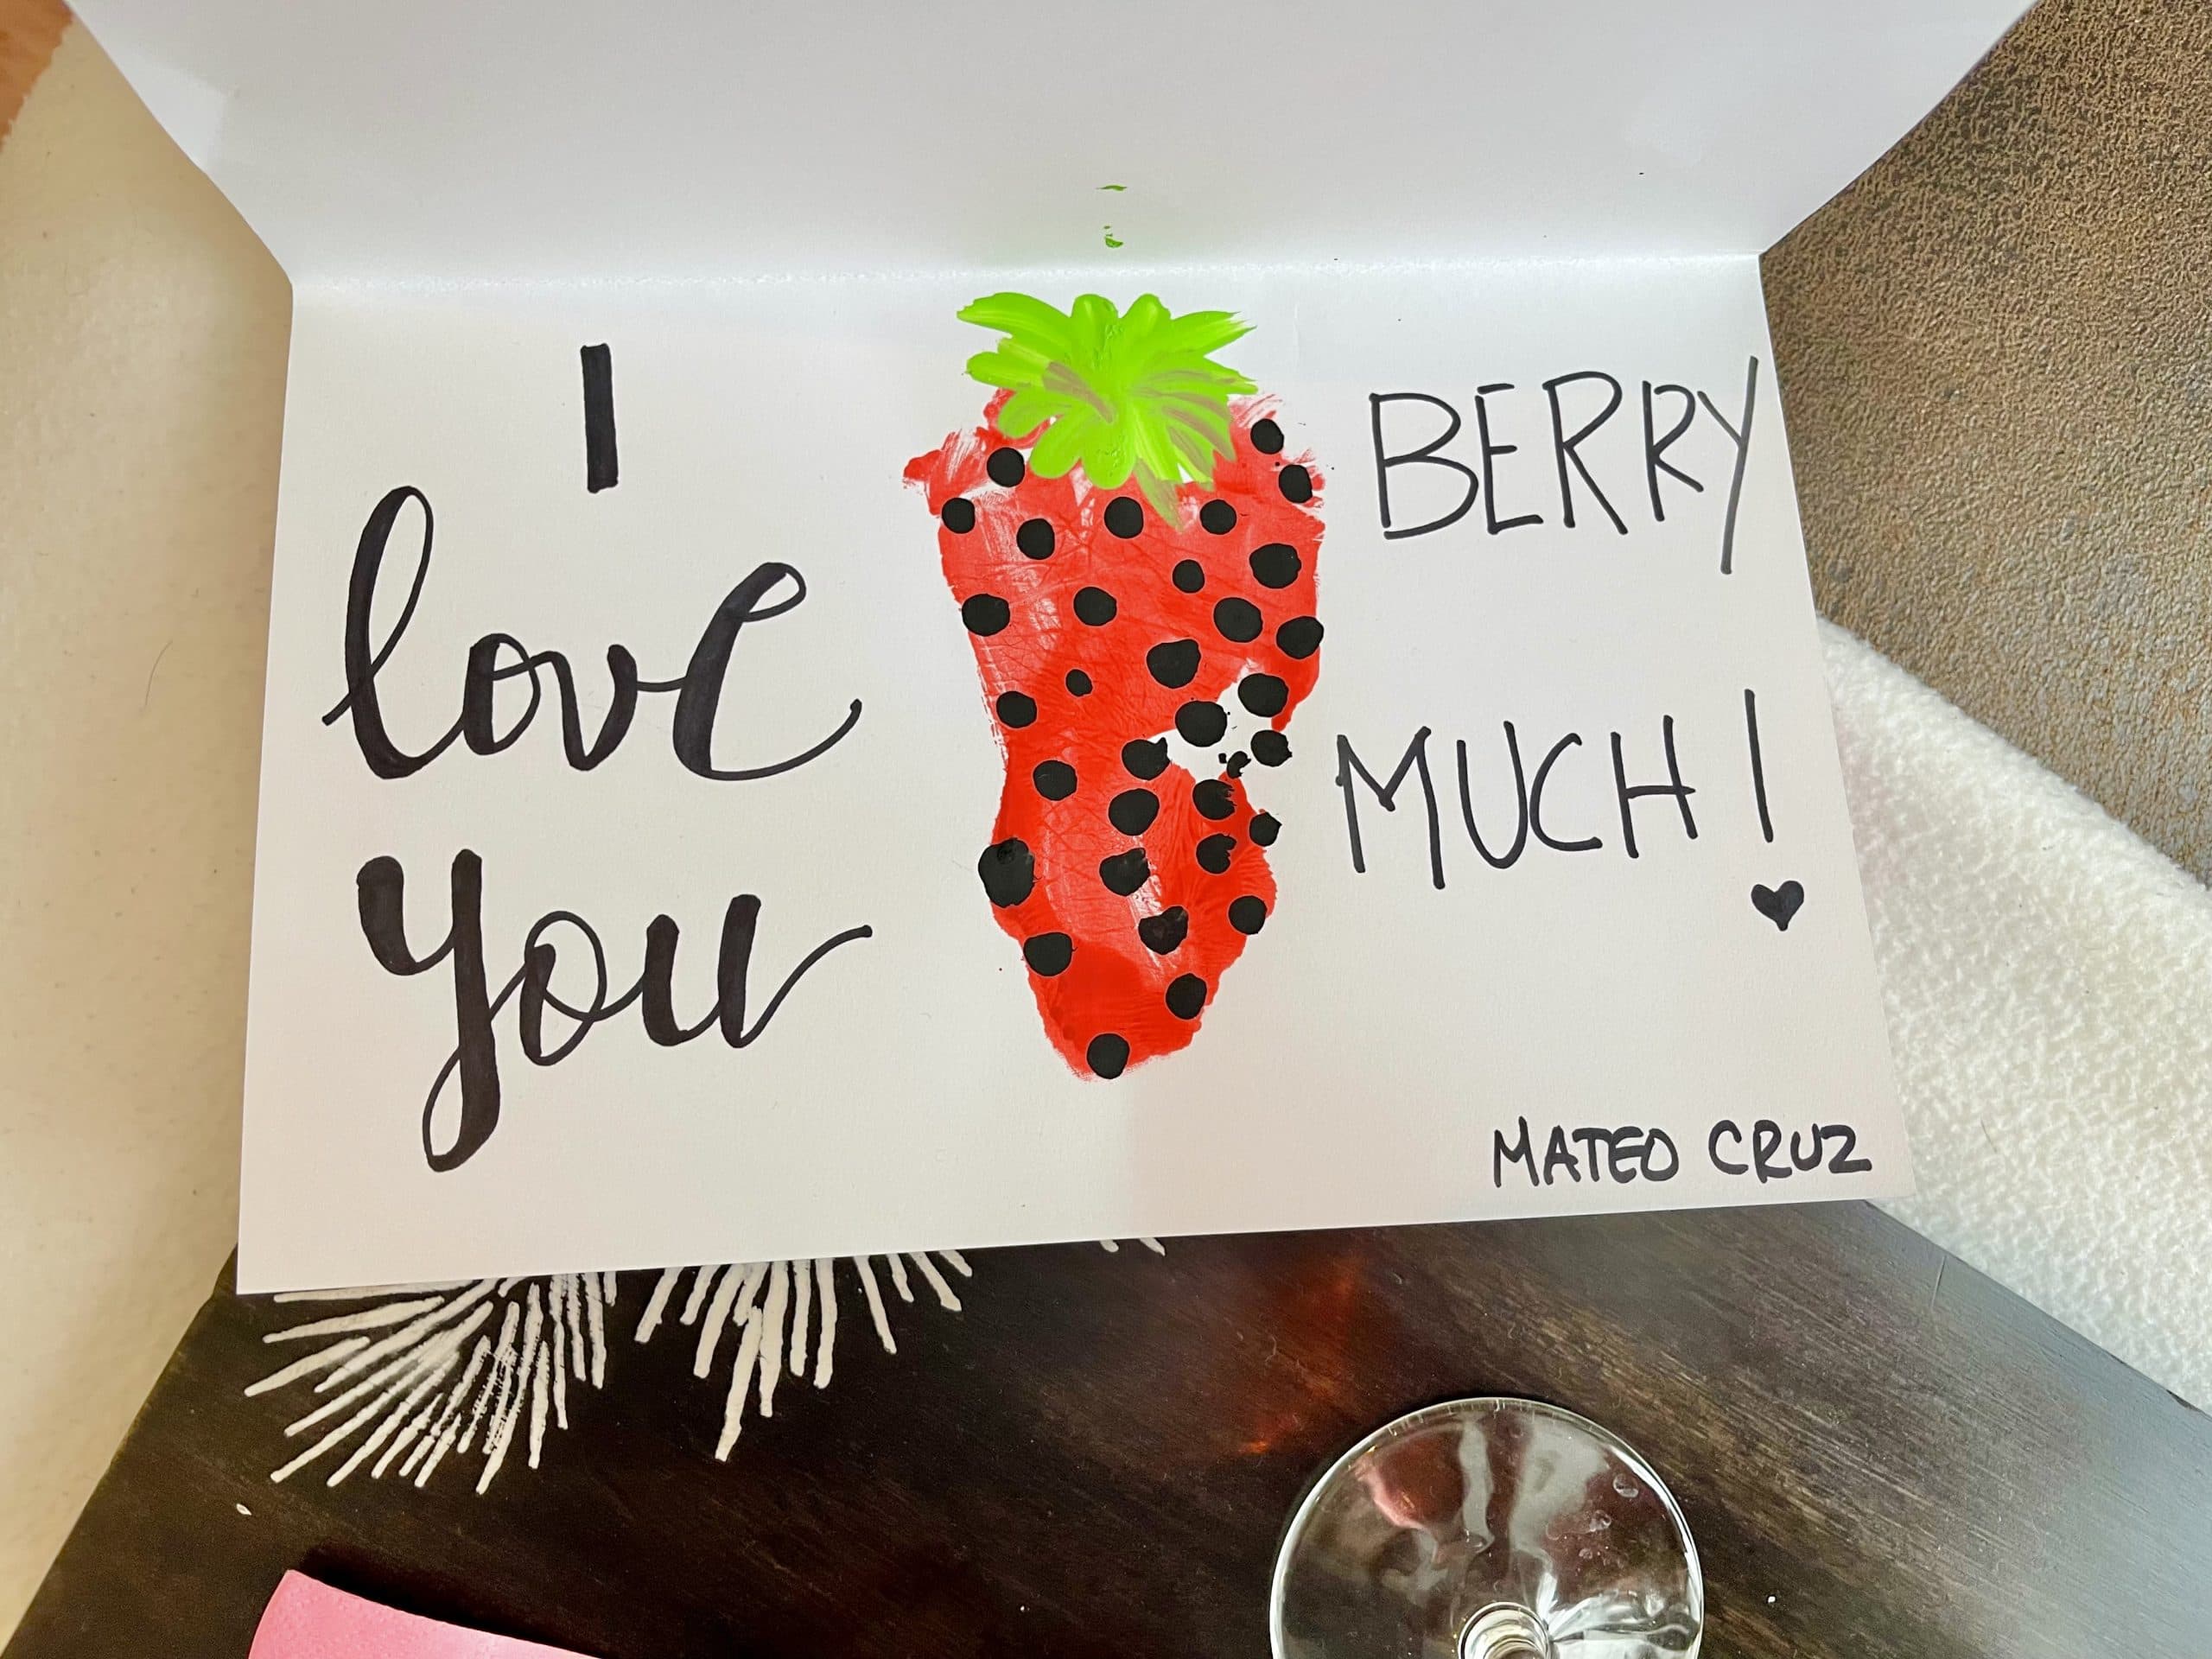 I
love
you
BERRY
MUCH!
MATEO CRUZ